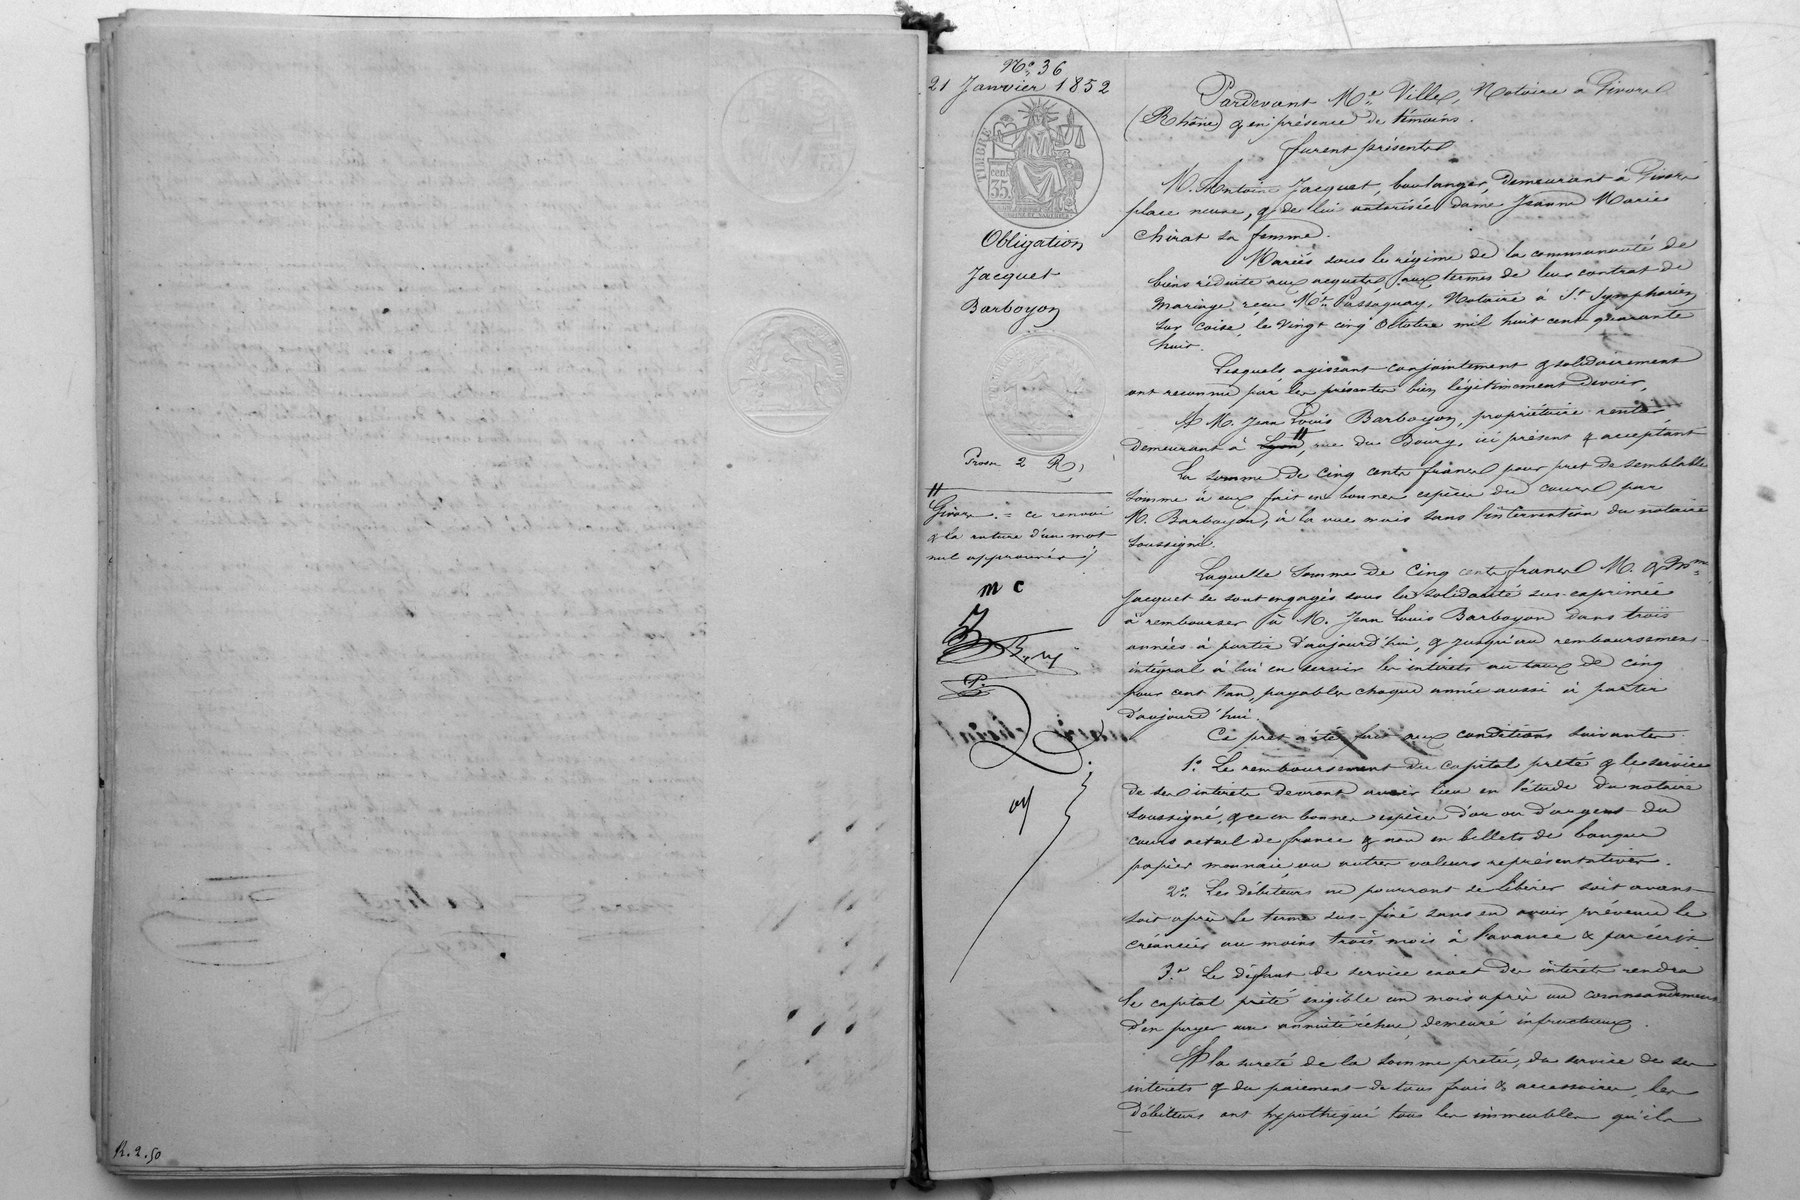 N.° 36
21 Janvier 1852
TIMBRE
cen
35
Obligation
Jacquet
Barboyon
2 R
Givors = ce renvoi
& la rature d'un mot
nul approuvés
m c
Pardevant M.e Ville, Notaire à Givors
(Rhône) & en présence de témoins.
furent présents
M. Antoine Jacquet, boulanger, demeurant à Givors
place neuve, & de lui autorisée dame Jeanne Marie
Chirat sa femme.
Mariés sous le régime de la communauté de
biens réduite aux acquets aux termes de leur contrat de
mariage reçu M.e Passaquay, Notaire à S.t Symphorien
sur Coise, le vingt cinq Octobre mil huit cent quarante
huit.
Lesquels agissant conjointement & solidairement
ont reconnu par les présentes bien légitimement devoir,
A M. Jean Louis Barboyon, propriétaire rentier
demeurant à Lyon, rue du Bourg, ici présent & acceptant
La somme de cinq cents francs pour pret de semblable
somme à eux fait en bonnes espèces du cours par
M. Barboyon, à la vue mais sans l'intervention du notaire
soussigné.
Laquelle somme de cinq cents francs M. & Mme
Jacquet se sont engagés sous la solidarité sus-exprimée
à rembourser à M. Jean Louis Barboyon dans trois
années à partir d'aujourd'hui, & jusqu'au remboursement
intégral à lui en servir les intérêts au taux de cinq
pour cent l'an, payables chaque année aussi à partir
d'aujourd'hui.
Ce pret a été fait aux conditions suivantes.
1.° Le remboursement du capital prêté & le service
de ses intérêts devront avoir lieu en l'étude du notaire
soussigné, & ce en bonnes espèces d'or ou d'argent du
cours actuel de france & non en billets de banque
papier monnaie, ou autres valeurs représentatives.
2.° Les débiteurs ne pourront se libérer soit avant
soit après le terme sus-fixé sans en avoir prévenu le
créancier au moins trois mois à l'avance & par écrit.
3.° Le défaut de service exact des intérêts rendra
le capital prêté exigible un mois après un commandement
d'en payer une annuité échue, demeuré infructueux.
A la sureté de la somme pretée, du service de ses
intérets & du paiement de tous frais & accessoires, les
débiteurs ont hypothéqué tous les immeubles qu'ils
R. 2. 50